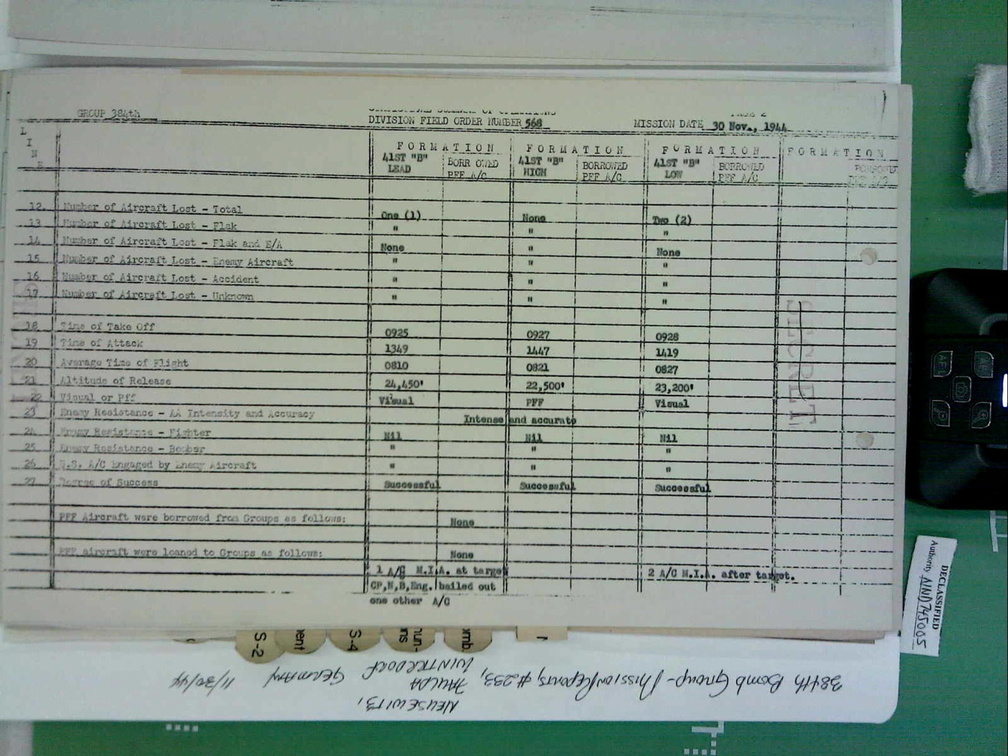 GROUP 384th
DIVISION FIELD ORDER NUMBER 568
MISSION DATE 30 Nov., 1944
L
I
N
E
FORMATION FORMATION FORMATION FORMATION
41ST "B" LEAD BORROWED PFF A/C 41ST "B" HIGH BORROWED PFF A/C 41ST "B" LOW BORROWED PFF A/C
12. Number of Aircraft Lost - Total One (1) None Two (2)
13 Number of Aircraft Lost - Flak " " "
14 Number of Aircraft Lost - Flak and E/A None " None
15 Number of Aircraft Lost - Enemy Aircraft " " "
16 Number of Aircraft Lost - Accident " " "
17 Number of Aircraft Lost - Unknown " " "
18 Time of Take Off 0925 0927 0928
19 Time of Attack 1349 1447 1419
20 Average Time of Flight 0810 0821 0827
21 Altitude of Release 24,450' 22,500' 23,200'
22 Visual or Pff Visual PFF Visual
23 Enemy Resistance - AA Intensity and Accuracy Intense and accurate
24 Enemy Resistance - Fighter Nil Nil Nil
25 Enemy Resistance - Bomber " " "
26 U.S. A/C Engaged by Enemy Aircraft " " "
27 Degree of Success Successful Successful Successful
PFF Aircraft were borrowed from Groups as follows: None
PFF aircraft were loaned to Groups as follows: None
1 A/C M.I.A. at target 2 A/C M.I.A. after target.
CP,N,B,Eng. bailed out
one other A/C
SECRET
DECLASSIFIED
Authority NND745005
S-2
S-4
384th Bomb Group - Mission Reports, #233,
NEUSEWITZ,
FAULDA
WINTERDORF GERMANY
11/30/44